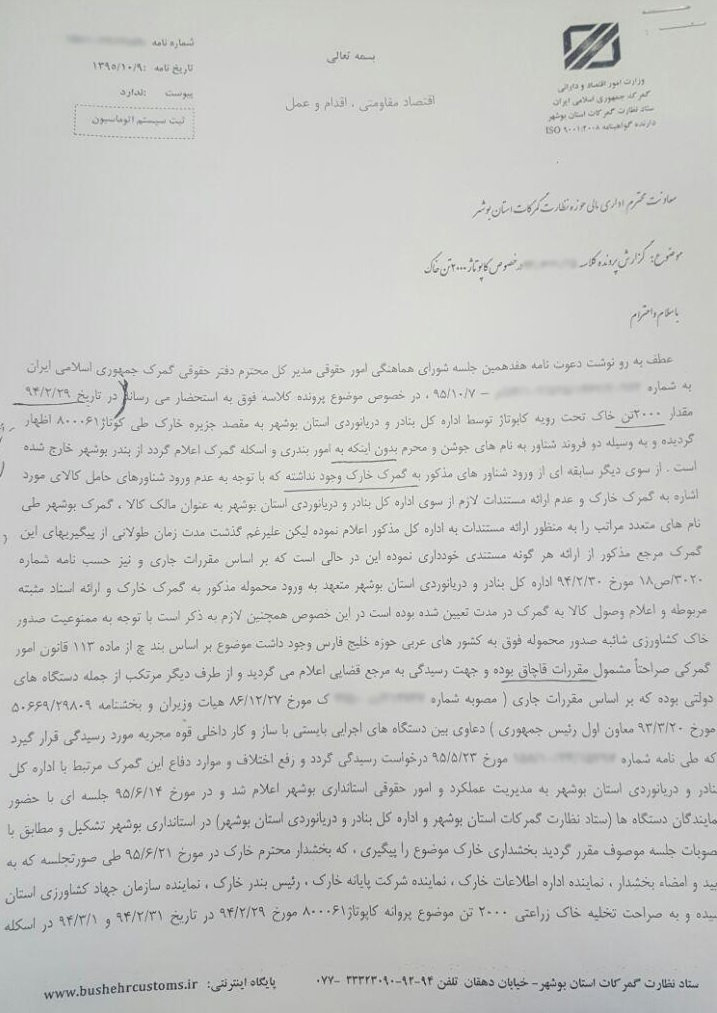 شماره نامه
تاریخ نامه :۱۳۹۵/۱۰/۹
پیوست :ندارد
ثبت سیستم اتوماسیون
بسمه تعالی
اقتصاد مقاومتی ، اقدام و عمل
وزارت امور اقتصاد و دارائی
گمرک جمهوری اسلامی ایران
ستاد نظارت گمرکات استان بوشهر
دارنده گواهینامه ISO ۹۰۰۱:۲۰۰۸
معاونت محترم اداری مالی حوزه نظارت گمرکات استان بوشهر
موضوع: گزارش پرونده کلاسه در خصوص کاپوتاژ ۲۰۰۰تن خاک
باسلام و احترام
عطف به رو نوشت دعوت نامه هفدهمین جلسه شورای هماهنگی امور حقوقی مدیر کل محترم دفتر حقوقی گمرک جمهوری اسلامی ایران
به شماره – ۹۵/۱۰/۷ ، در خصوص موضوع پرونده کلاسه فوق به استحضار می رساند در تاریخ ۹۴/۲/۲۹
مقدار ۲۰۰۰تن خاک تحت رویه کابوتاژ توسط اداره کل بنادر و دریانوردی استان بوشهر به مقصد جزیره خارک طی کوتاژ ۸۰۰۰۶۱ اظهار
گردیده و به وسیله دو فروند شناور به نام های جوشن و محرم بدون اینکه به امور بندری و اسکله گمرک اعلام گردد از بندر بوشهر خارج شده
است . از سوی دیگر سابقه ای از ورود شناور های مذکور به گمرک خارک وجود نداشته که با توجه به عدم ورود شناورهای حامل کالای مورد
اشاره به گمرک خارک و عدم ارائه مستندات لازم از سوی اداره کل بنادر و دریانوردی استان بوشهر به عنوان مالک کالا ، گمرک بوشهر طی
نام های متعدد مراتب را به منظور ارائه مستندات به اداره کل مذکور اعلام نموده لیکن علیرغم گذشت مدت زمان طولانی از پیگیریهای این
گمرک مرجع مذکور از ارائه هر گونه مستندی خودداری نموده این در حالی است که بر اساس مقررات جاری و نیز حسب نامه شماره
۳۰۲۰/ص۱۸ مورخ ۹۴/۲/۳۰ اداره کل بنادر و دریانوردی استان بوشهر متعهد به ورود محموله مذکور به گمرک خارک و ارائه اسناد مثبته
مربوطه و اعلام وصول کالا به گمرک در مدت تعیین شده بوده است در این خصوص همچنین لازم به ذکر است با توجه به ممنوعیت صدور
خاک کشاورزی شائبه صدور محموله فوق به کشور های عربی حوزه خلیج فارس وجود داشت موضوع بر اساس بند چ از ماده ۱۱۳ قانون امور
گمرکی صراحتاً مشمول مقررات قاچاق بوده و جهت رسیدگی به مرجع قضایی اعلام می گردید و از طرف دیگر مرتکب از جمله دستگاه های
دولتی بوده که بر اساس مقررات جاری ( مصوبه شماره ک مورخ ۸۶/۱۲/۲۷ هیات وزیران و بخشنامه ۵۰۶۶۹/۲۹۸۰۹
مورخ ۹۳/۳/۲۰ معاون اول رئیس جمهوری ) دعاوی بین دستگاه های اجرایی بایستی با ساز و کار داخلی قوه مجریه مورد رسیدگی قرار گیرد
که طی نامه شماره مورخ ۹۵/۵/۲۳ درخواست رسیدگی گردد و رفع اختلاف و موارد دفاع این گمرک مرتبط با اداره کل
نادر و دریانوردی استان بوشهر به مدیریت عملکرد و امور حقوقی استانداری بوشهر اعلام شد و در مورخ ۹۵/۶/۱۴ جلسه ای با حضور
مایندگان دستگاه ها (ستاد نظارت گمرکات استان بوشهر و اداره کل بنادر و دریانوردی استان بوشهر) در استانداری بوشهر تشکیل و مطابق با
صوبات جلسه موصوف مقرر گردید بخشداری خارک موضوع را پیگیری ، که بخشدار محترم خارک در مورخ ۹۵/۶/۲۱ طی صورتجلسه که به
یید و امضاء بخشدار ، نماینده اداره اطلاعات خارک ، نماینده شرکت پایانه خارک ، رئیس بندر خارک ، نماینده سازمان جهاد کشاورزی استان
سیده و به صراحت تخلیه خاک زراعتی ۲۰۰۰ تن موضوع پروانه کاپوتاژ۸۰۰۰۶۱ مورخ ۹۴/۲/۲۹ در تاریخ ۹۴/۲/۳۱ و ۹۴/۳/۱ در اسکله
ستاد نظارت گمرکات استان بوشهر- خیابان دهقان تلفن ۹۴-۹۲-۳۳۳۲۳۰۹۰ -۰۷۷ پایگاه اینترنتی: www.bushehrcustoms.ir